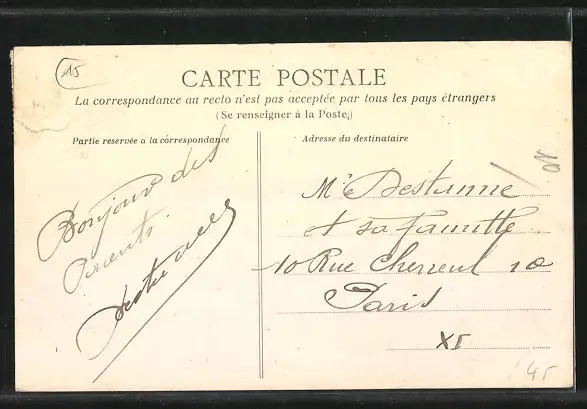 15
CARTE POSTALE
La correspondance au recto n'est pas acceptée par tous les pays étrangers
(Se renseigner à la Poste)
Partie reservée a la correspondance
Adresse du destinataire
Bonjour des
Parents
Mr Destanne
et sa famille
10 Rue Chevreul 10
Paris
XI
45